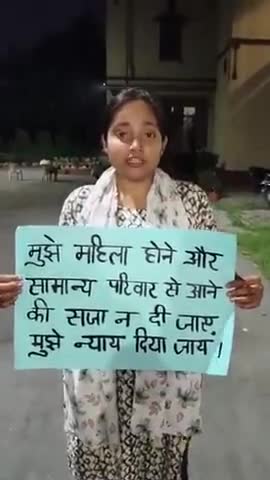 मुझे महिला होने और
सामान्य परिवार से आने
की सजा न दी जाए,
मुझे न्याय दिया जाय।